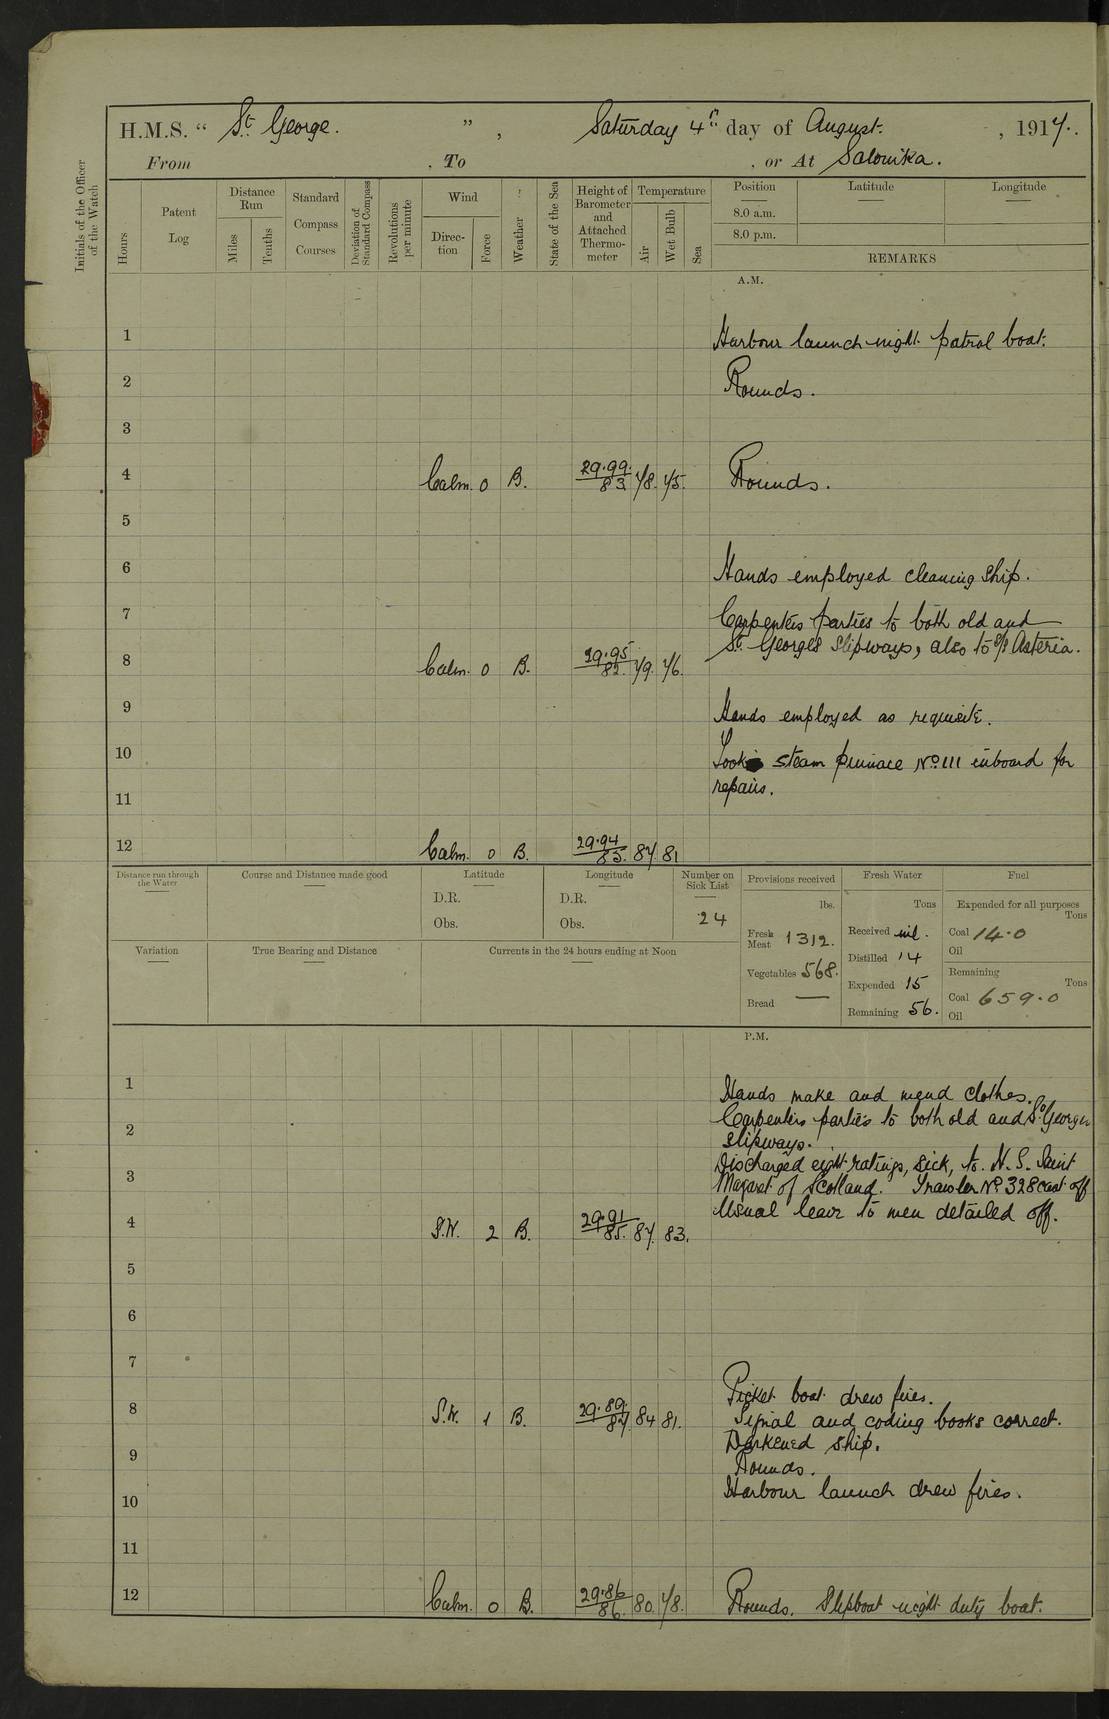 H.M.S. “ St George. ” , Saturday 4th day of August. , 1917.
From , To , or At Salonika.
Initials of the Officer of the Watch
Hours
Patent Log
Distance Run
Miles
Tenths
Standard Compass Courses
Deviation of Standard Compass
Revolutions per minute
Wind
Direction
Force
Weather
State of the Sea
Height of Barometer and Attached Thermometer
Temperature
Air
Wet Bulb
Sea
Position Latitude Longitude
8.0 a.m.
8.0 p.m.
REMARKS
A.M.
1 Harbour launch night patrol boat.
2 Rounds.
3
4 Calm. 0 B. 29.99. 83 78. 75. Rounds.
5
6 Hands employed cleaning ship.
7 Carpenters parties to both old and
St. Georges slipways, also to S/S Asteria.
8 Calm. 0 B. 29.95 82. 79. 76.
9 Hands employed as requisite.
10 Took steam pinnace No 111 inboard for
repairs.
11
12 Calm. 0 B. 29.94 85. 87. 81
Distance run through the Water
Course and Distance made good
Latitude
D.R.
Obs.
Longitude
D.R.
Obs.
Number on Sick List
24
Provisions received
lbs.
Fresh Meat 1312.
Vegetables 568.
Bread —
Fresh Water
Tons
Received nil.
Distilled 14
Expended 15
Remaining 56.
Fuel
Expended for all purposes
Tons
Coal 14.0
Oil
Remaining
Tons
Coal 659.0
Oil
Variation
True Bearing and Distance
Currents in the 24 hours ending at Noon
P.M.
1 Hands make and mend clothes.
Carpenters parties to both old and St. Georges
2 slipways.
Discharged eight ratings, sick, to H.S. Saint
3 Margaret of Scotland. Trawler No 328 cast off
Usual leave to men detailed off.
4 S.W. 2 B. 29.91 85. 87. 83.
5
6
7
Picket boat drew fires.
8 S.W. 1 B. 29.89. 87. 84 81. Signal and coding books correct.
Darkened ship.
9 Rounds.
10 Harbour launch drew fires.
11
12 Calm. 0 B. 29.86 86. 80. 78. Rounds. Slipboat night duty boat.